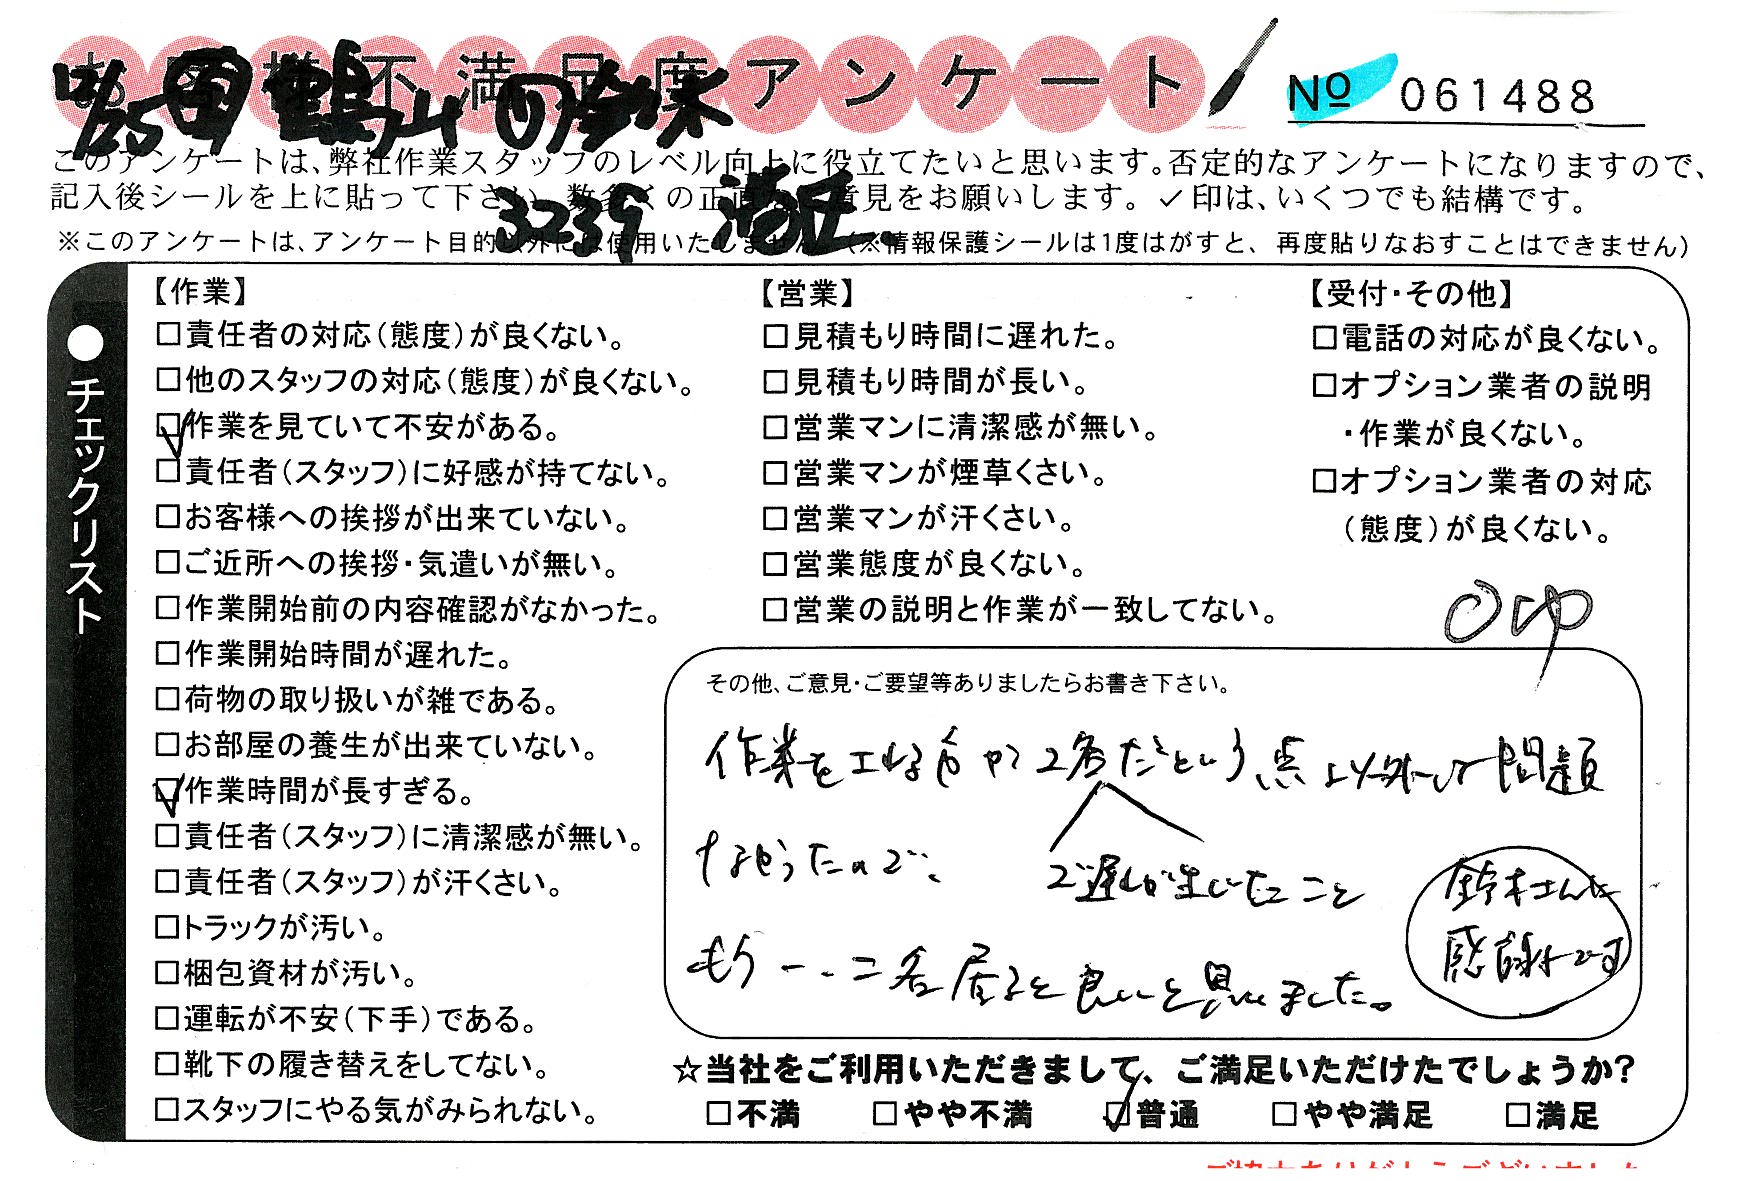 お客様不満足度アンケート
№ 061488
12/25
3239
このアンケートは、弊社作業スタッフのレベル向上に役立てたいと思います。否定的なアンケートになりますので、
記入後シールを上に貼って下さい 数多くの正直 意見をお願いします。✓印は、いくつでも結構です。
※このアンケートは、アンケート目的以外には使用いたしません。(※情報保護シールは1度はがすと、再度貼りなおすことはできません)
●チェックリスト
【作業】
□責任者の対応(態度)が良くない。
□他のスタッフの対応(態度)が良くない。
☑作業を見ていて不安がある。
□責任者(スタッフ)に好感が持てない。
□お客様への挨拶が出来ていない。
□ご近所への挨拶・気遣いが無い。
□作業開始前の内容確認がなかった。
□作業開始時間が遅れた。
□荷物の取り扱いが雑である。
□お部屋の養生が出来ていない。
☑作業時間が長すぎる。
□責任者(スタッフ)に清潔感が無い。
□責任者(スタッフ)が汗くさい。
□トラックが汚い。
□梱包資材が汚い。
□運転が不安(下手)である。
□靴下の履き替えをしてない。
□スタッフにやる気がみられない。
【営業】
□見積もり時間に遅れた。
□見積もり時間が長い。
□営業マンに清潔感が無い。
□営業マンが煙草くさい。
□営業マンが汗くさい。
□営業態度が良くない。
□営業の説明と作業が一致してない。
【受付・その他】
□電話の対応が良くない。
□オプション業者の説明
・作業が良くない。
□オプション業者の対応
(態度)が良くない。
その他、ご意見・ご要望等ありましたらお書き下さい。
作業を 2名だという点以外は問題
なかったので、
で遅れが生じたこと
もう一、二名居ると良いと思いました。
鈴木さんに
感謝です
☆当社をご利用いただきまして、ご満足いただけたでしょうか?
□不満 □やや不満 ☑普通 □やや満足 □満足